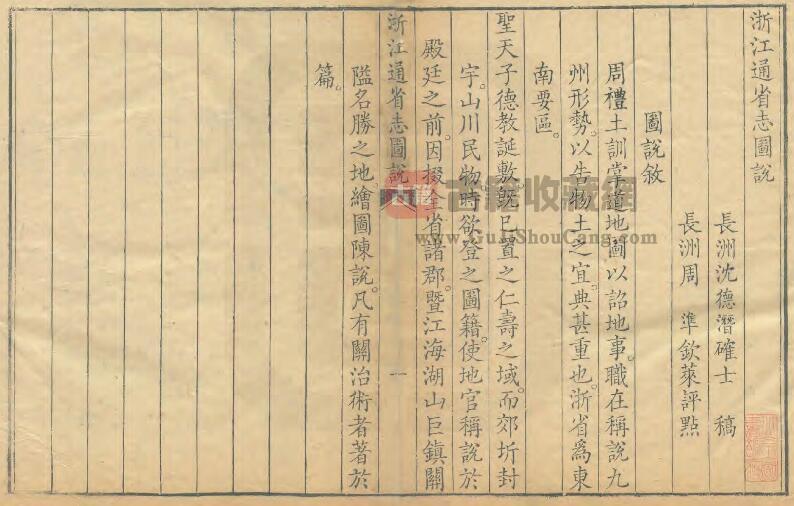 浙江通省志圖說
長洲沈德潛確士 稿
長洲周 準欽萊評點
圖說敘
周禮土訓掌道地圖以詔地事。職在稱說九
州形勢。以告物土之宜。典甚重也。浙省爲東
南要區。
聖天子德教誕敷。旣已置之仁壽之域。而郊圻封
宇。山川民物。時欲登之圖籍。使地官稱說於
殿廷之前。因掇全省諸郡。暨江海湖山巨鎮關
浙江通省志圖說 一
隘名勝之地。繪圖陳說。凡有關治術者著於
篇。
古籍 古籍收藏網
www.GuJiShouCang.com